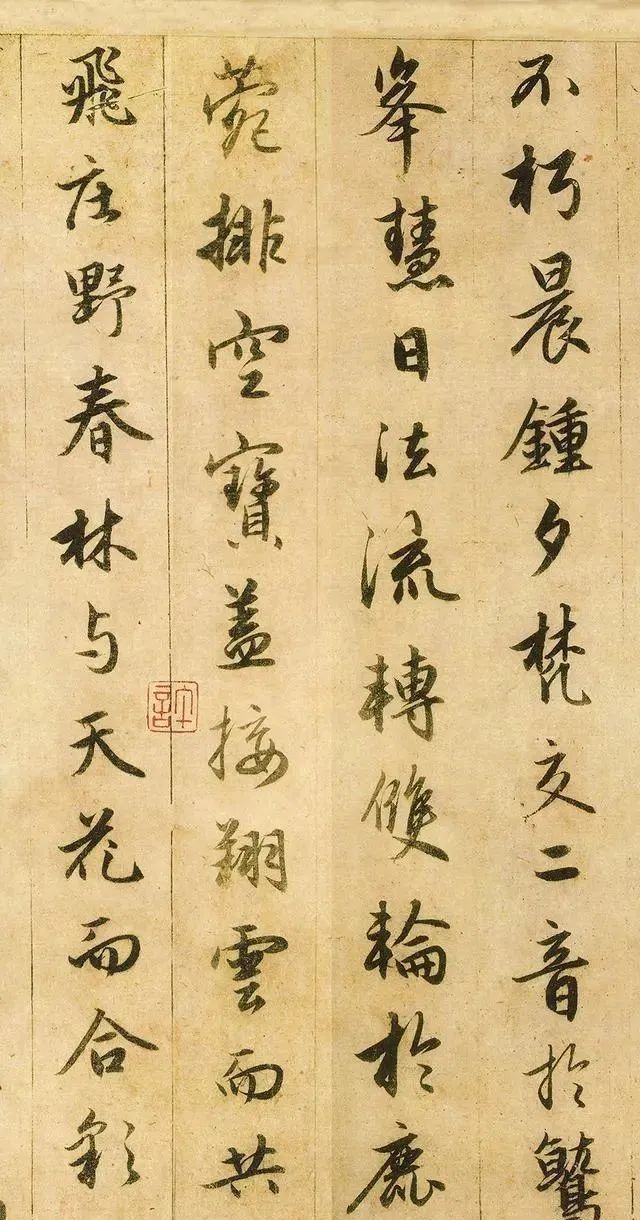 不朽晨鍾夕梵交二音於鷲
峯慧日法流轉雙輪於鹿
菀排空寶蓋接翔雲而共
飛庄野春林与天花而合彩